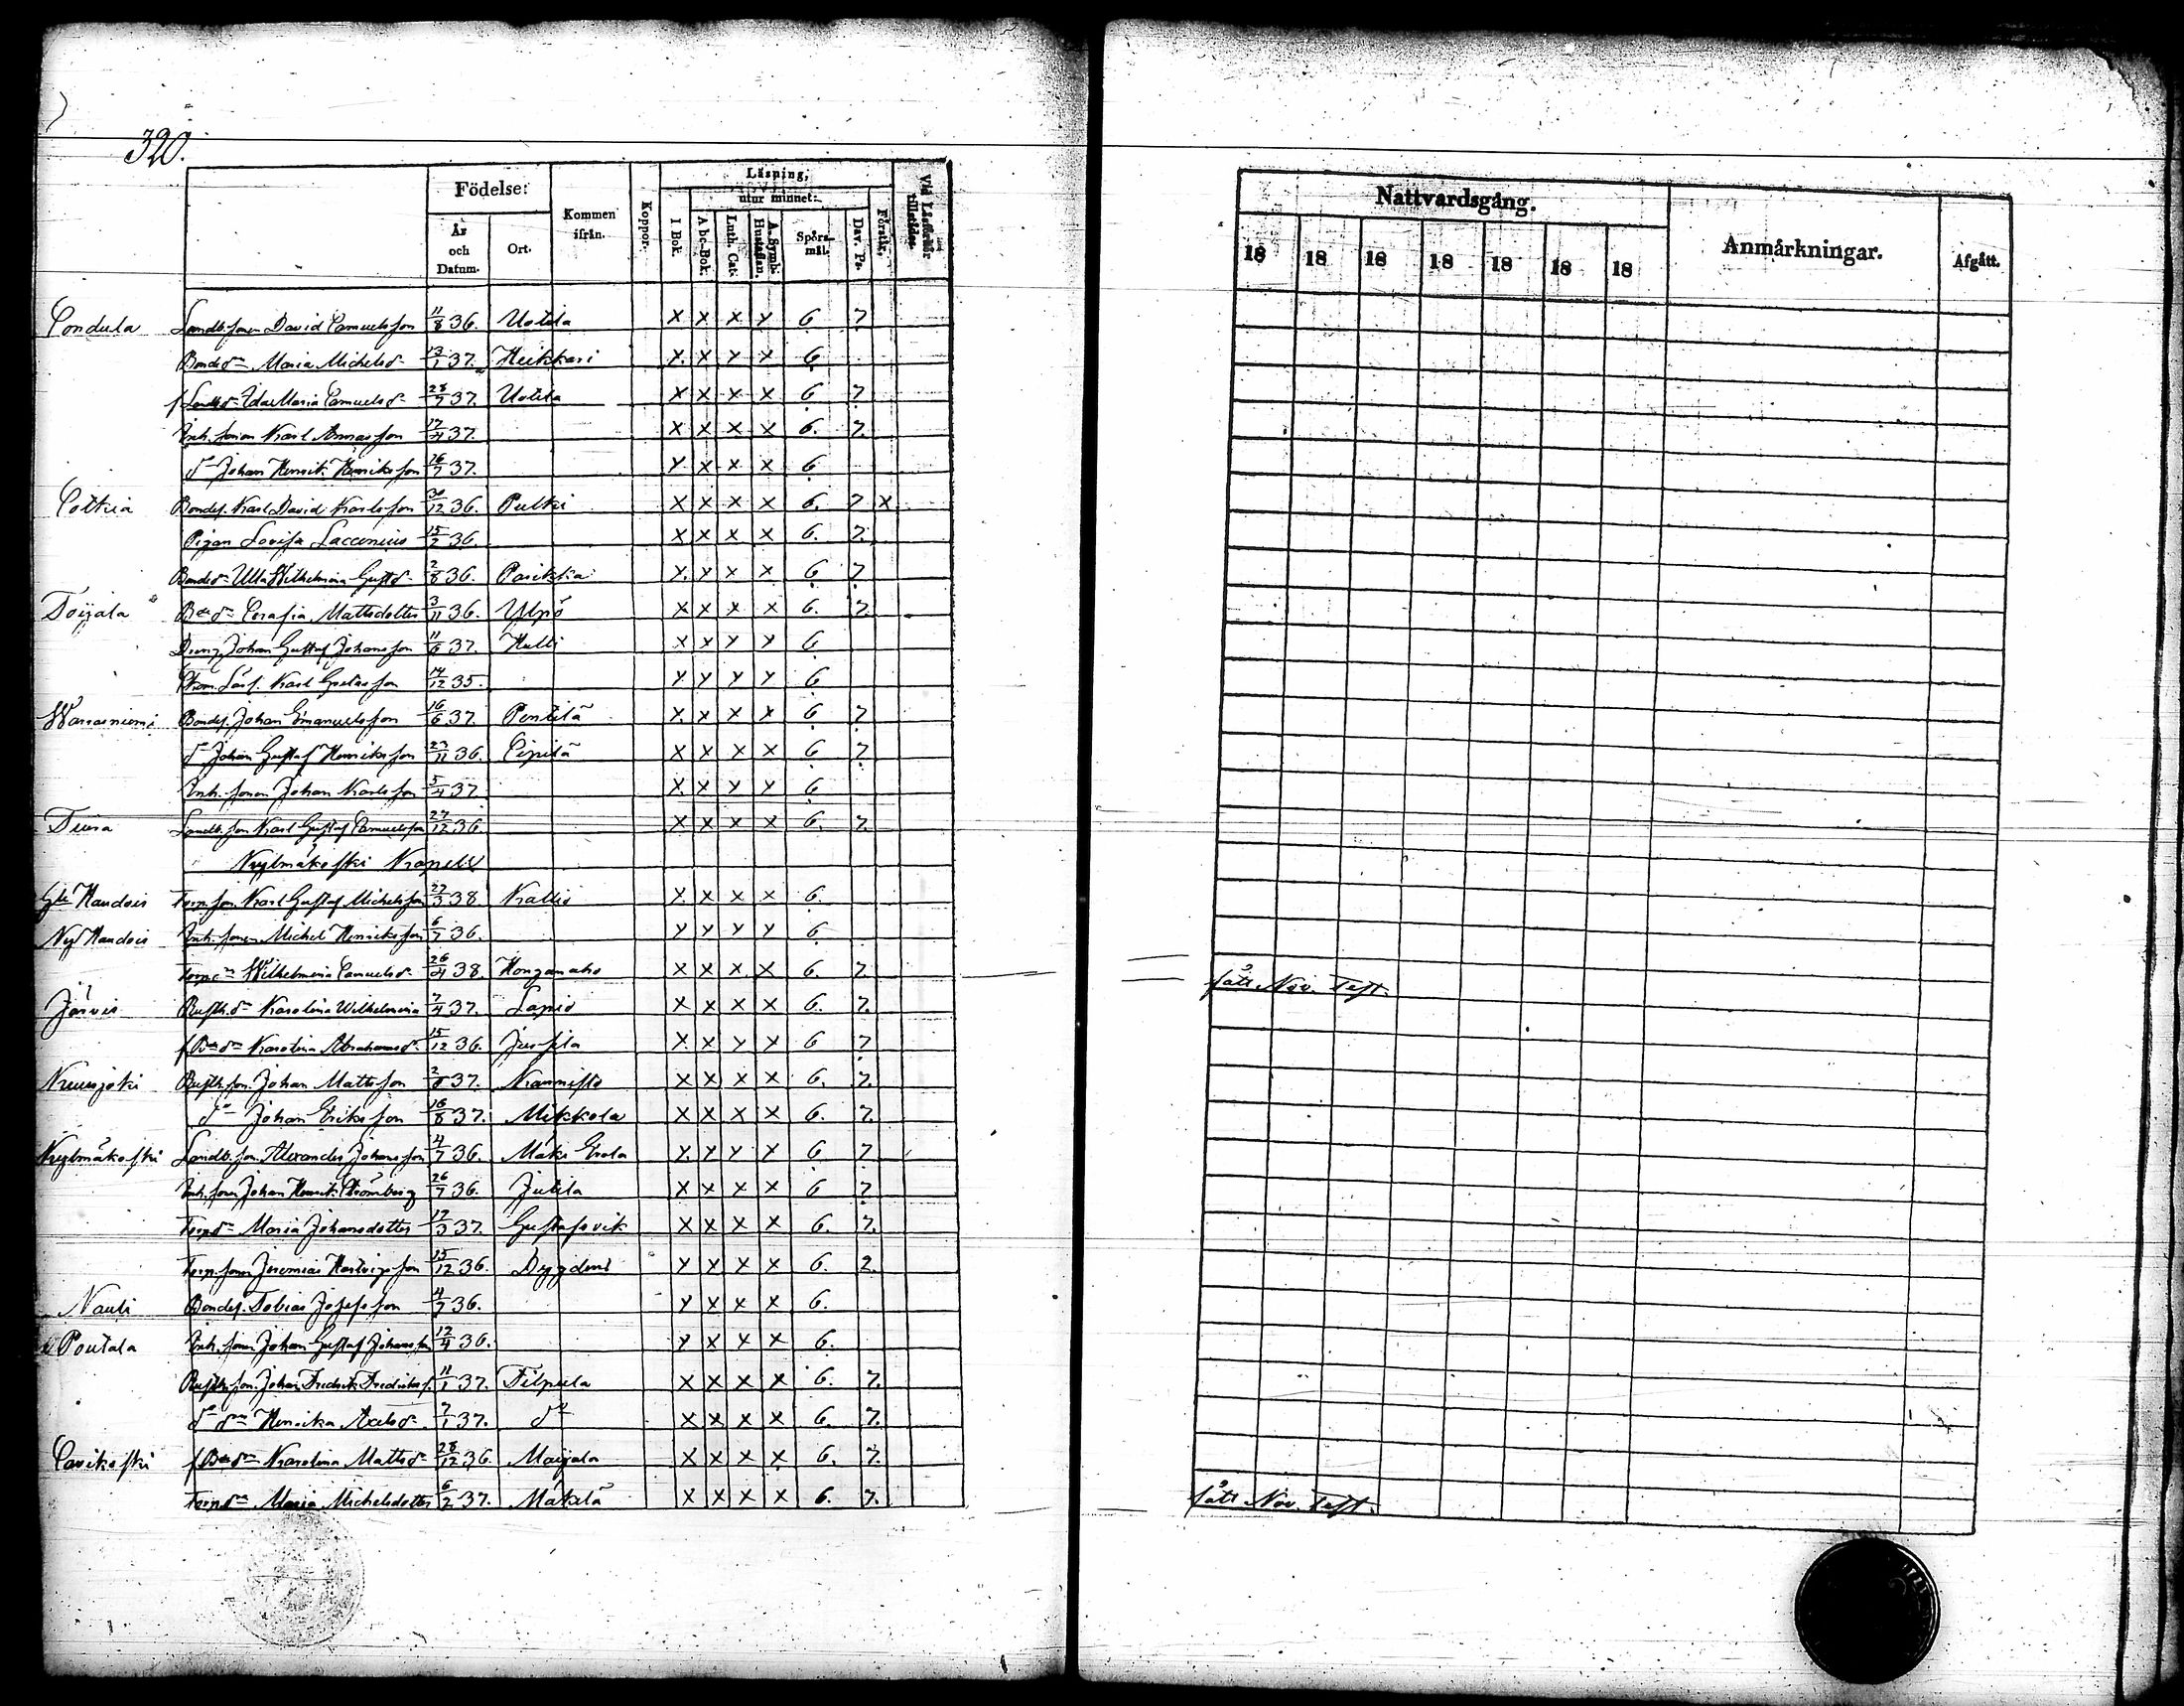 320.
Födelse: Kommen ifrån. Koppor. Läsning, utur minnet: Vid Läsförhör tillstädes.
År och Datum. Ort. I Bok. Abc-Bok. Luth. Cat. A. Symb. Hustaflan. Spörsmål. Dav. Ps. Förstår.
Sondula Landb. sonen David Samuelsson 11/8 36. Uotila x x x x 6 7.
Bonded:n Maria Michelsd:r 13/1 37. Heikkari x x x x 6
f Landbd:n Ida Maria Samuelsd:r 28/7 37. Uotila x x x x 6 7.
Inh. sonen Karl Annasson 17/4 37. x x x x 6. 7.
d:o Johan Henrik Henriksson 26/7 37. x x x x 6
Sottkia Bondes. Karl David Karlsson 30/12 36. Pulki x x x x 6. 7 x
Pigan Lovisa 15/2 36. x x x x 6. 7.
Bonded:n Ulla Wilhelmina Gustd:r 2/8 36. Parikka x x x x 6 7
Toijala Bded:n Serafia Mattsdotter 3/11 36. Ylpö x x x x 6. 7.
Dreng Johan Gustaf Johansson 11/6 37. Hulli x x x x 6
Karl Gustafsson 14/12 35. x x x x 6
Warrasniemi Bondes. Johan Emanuelsson 16/6 37. Pentilä x x x x 6 7
d:o Johan Gustaf Henriksson 27/11 36. Sipilä x x x x 6 7.
Inh. sonen Johan Karlsson 5/4 37. x x x x 6
Landb. son Karl Gustaf Samuelsson 27/12 36 x x x x 6. 7.
Kylmäkoski Kapell
Gle Haudois Torp. son. Karl Gustaf Michelsson 27/3 38. Kallio x x x x 6.
Ny Haudois Inh. sonen Michel Henriksson 6/7 36. x x x x 6
Torpd:n Wilhelmina Samuelsd:r 26/4 38. Honganaho x x x x 6. 7.
Järvis Rusth.d:n Karolina Wilhelmina 7/4 37. Lapio x x x x 6. 7.
f Bded:n Karolina Abrahamsd:r 15/12 36. Jussila x x x x 6 7
Kruusjoki Rusth. son. Johan Mattsson 2/8 37. Krannisto x x x x 6. 7.
d:o Johan Eriksson 16/8 37. Mikkola x x x x 6. 7.
Kylmäkoski Landb. son. Alexander Johansson 4/7 36. Mäki Erola x x x x 6 7
Inh. sonen Johan Henrik Strömberg 26/7 36. Jutila x x x x 6 7.
Torpd:n Maria Johansdotter 17/3 37. Gustafsvik x x x x 6. 7.
Torp. sonen Jeremias Hartvigsson 15/12 36. Dygden x x x x 6. 2.
Nauli Bondes. Tobias Josefsson 4/7 36. x x x x 6.
Poutala Inh. sonen Johan Gustaf Johansson 12/4 36. x x x x 6.
Rusth. son. Johan Fredrik Fredrikss. 11/1 37. Filpula x x x x 6. 7.
d:o d:n Henrika Axelsd:r 7/1 37. d:o x x x x 6. 7.
Savikoski f Bded:n Karolina Mattsd:r 28/12 36. Maijala x x x x 6. 7.
Torpd:n Maria Michelsdotter 6/2 37. Mäkilä x x x x 6. 7.
Nattvardsgång. Anmärkningar. Afgått.
18 18 18 18 18 18 18
fått Nov. Test.
fått Nov. Test.